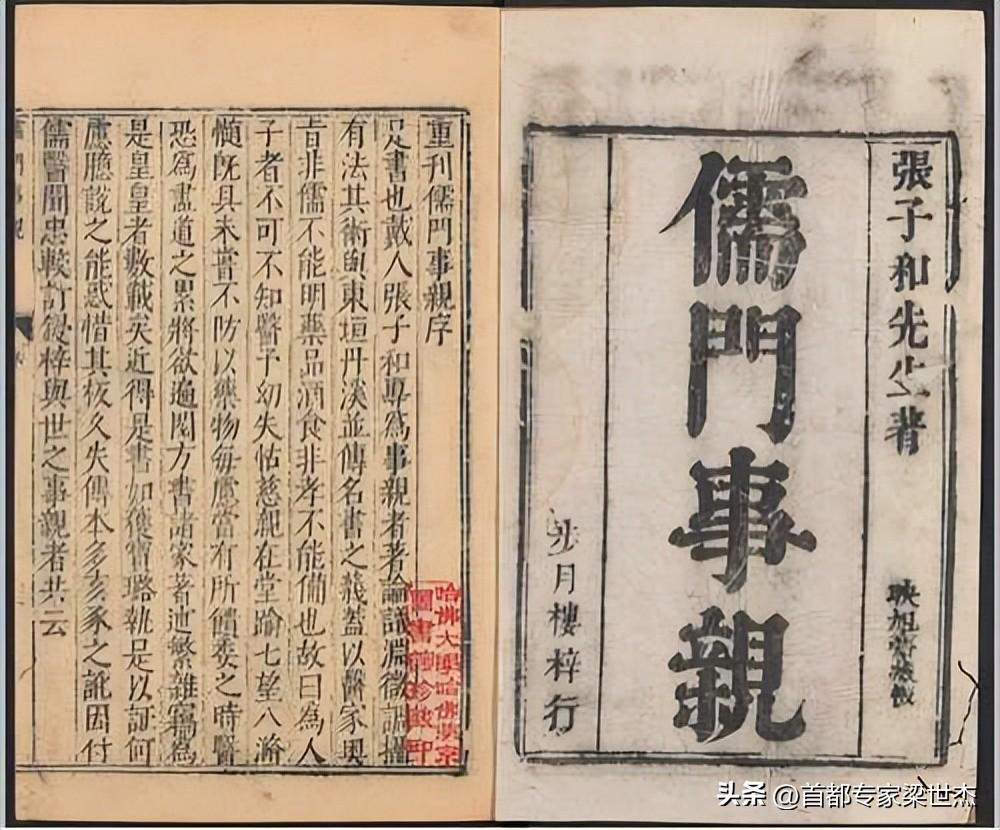 張子和先生著
映旭齋藏板
儒門事親
步月樓梓行
重刊儒門事親序
是書也戴人張子和專為事親者著論議淵微調攝
有法其術與東垣丹溪並傳名書之義蓋以醫家奧
旨非儒不能明藥品酒食非孝不能備也故曰為人
子者不可不知醫予幼失怙慈親在堂踰七望八滫
髓既具未嘗不防以藥物每慮當有所餽委之時醫
恐為盡道之累將欲遍閱方書諸家著述繁雜竊為
是皇皇者數載矣近得是書如獲寶璐執是以証何
慮臆說之能惑惜其板久失傳本多亥豕之訛因付
儒醫聞忠較訂鋟梓與世之事親者共云
哈佛大學哈佛燕京
圖書館珍藏印
头条 @首都专家梁世杰